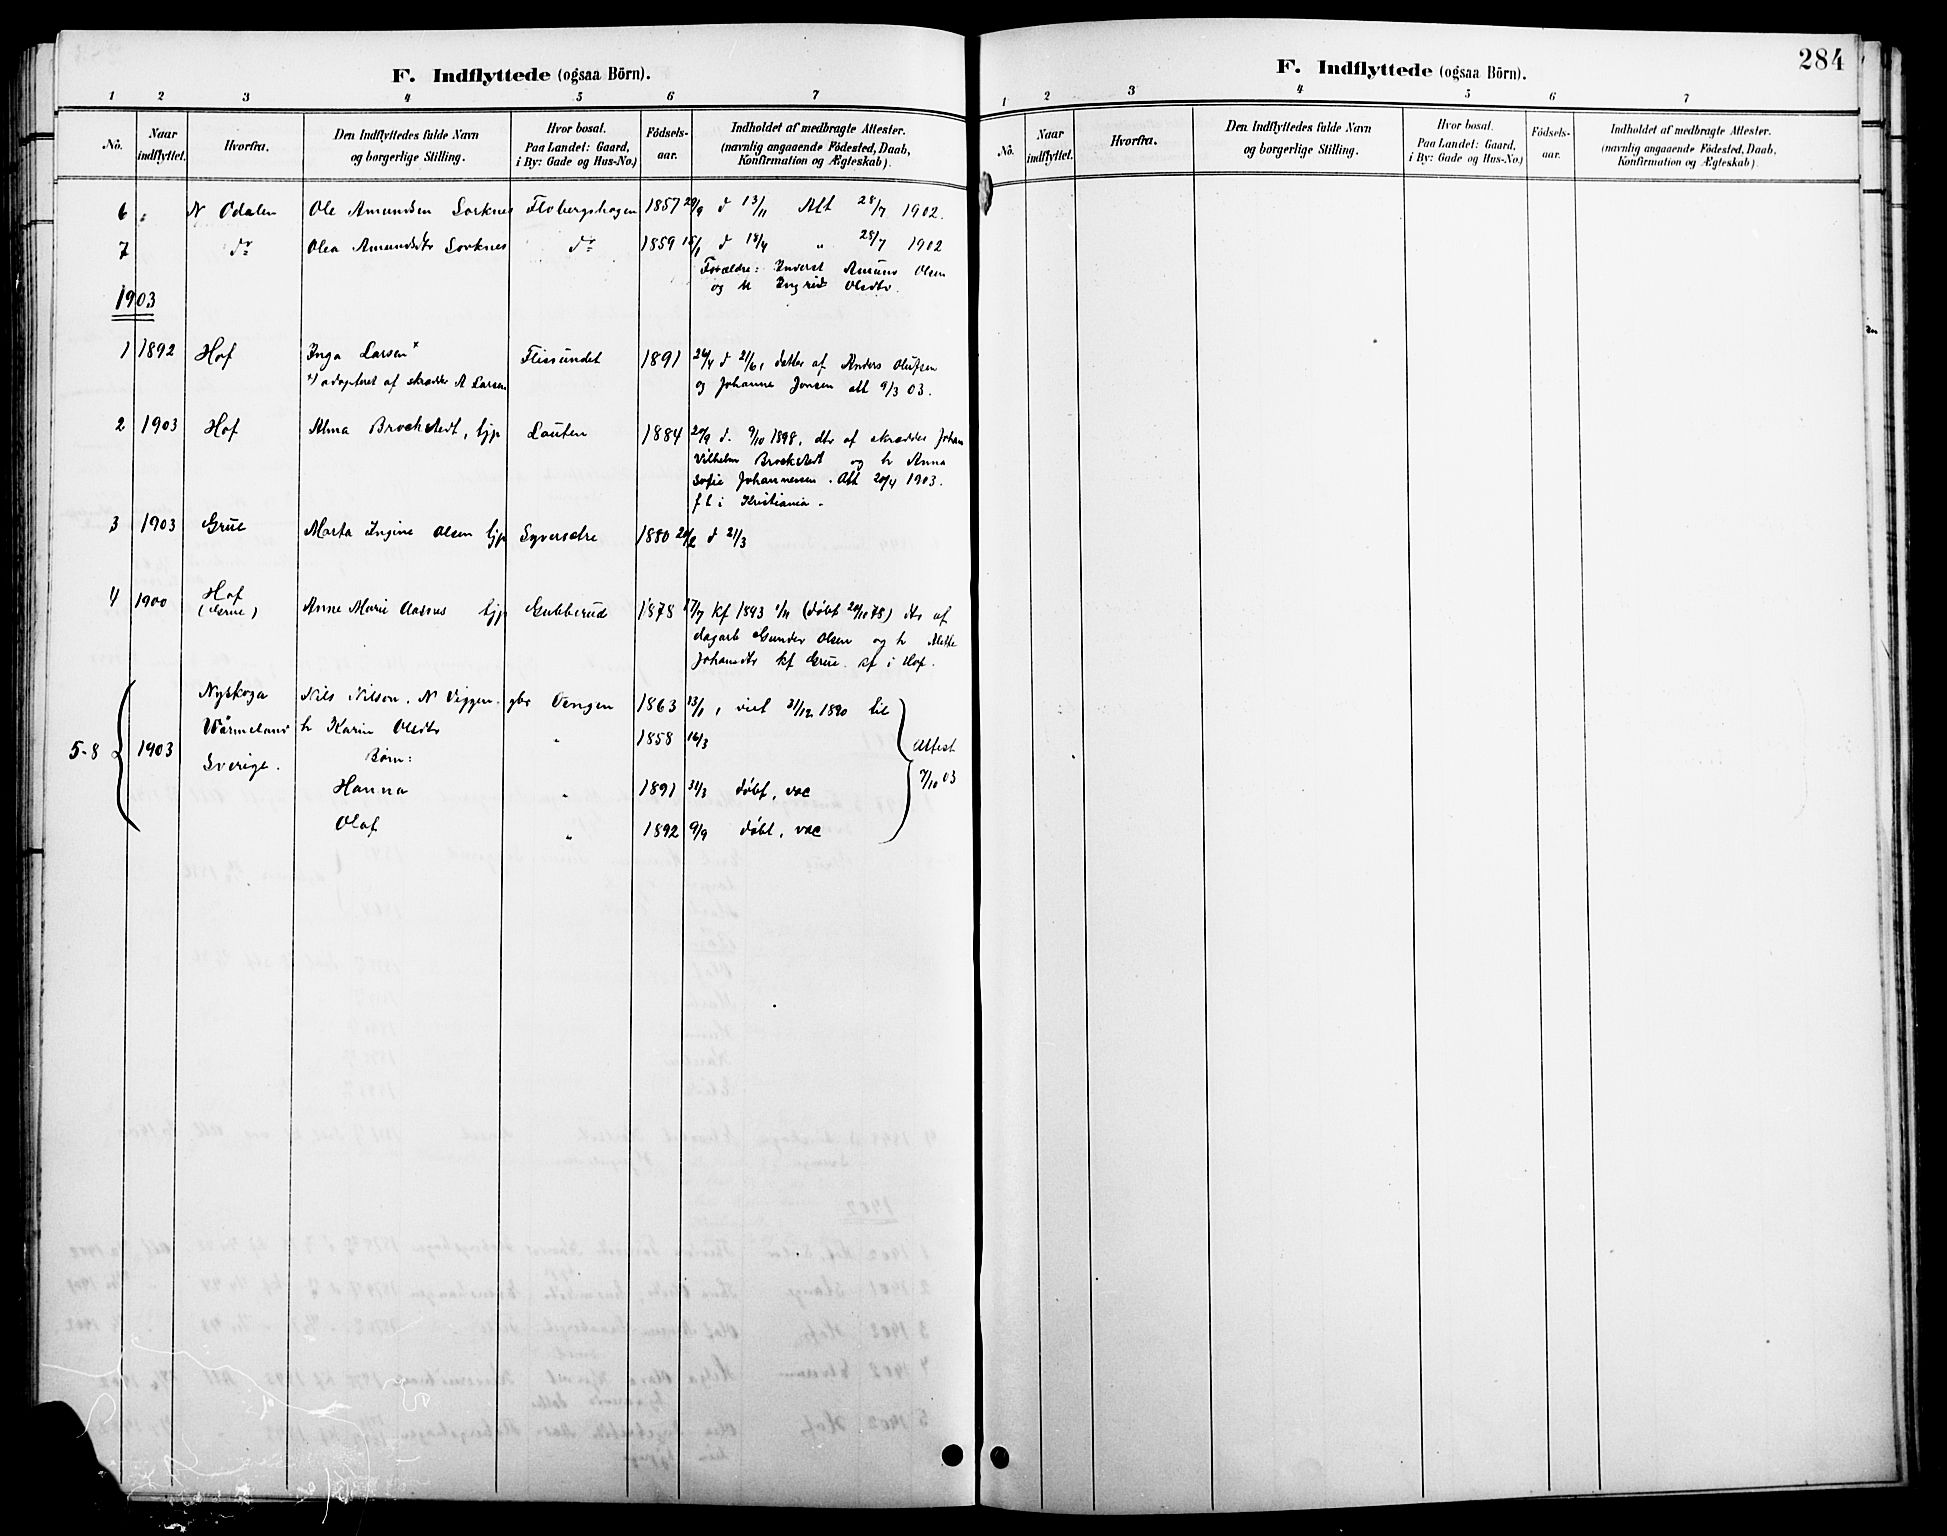 F. Indflyttede (ogsaa Börn).
1 2 3 4 5 6 7
Nö. Naar indflyttet. Hvorfra. Den Indflyttedes fulde Navn og borgerlige Stilling. Hvor bosat. Paa Landet: Gaard, i By: Gade og Hus-No.) Födsels-aar. Indholdet af medbragte Attester. (navnlig angaaende Födested, Daab, Konfirmation og Ægteskab).
6 " N Odalen Ole Amundsen Sorknes Flobergshagen 1857 29/9 d 13/11 Att 28/7 1902.
7 do Olea Amundsdtr Sorknes do 1859 d 18/4 " 28/7 1902
Forældre: Inderst Amund Olsen
og Ingrid Olsdtr.
1903
1 1892 Hof Inga Larsen x Flissundet 1891 26/4 d 21/6, datter af Anders Olufsen
x) adopteret af skrædder A Larsen og Johanne Jonsen att 9/3 03.
2 1903 Hof Alma Brockstedt, tjp Lauten 1884 20/9 d. 9/10 1898, dtr af skrædder Johan
Vilhelm Brockstedt og h Anna
Sofie Johannesen. Att 20/4 1903.
f. i Kristiania.
3 1903 Grue Marta Ingine Olsen tjp Syversætre 1880 20/2 d 21/3
4 1900 Hof (Grue) Anne Marie Aasnes tjp Gubberud 1878 17/7 kf 1893 (døbt 20/10 78) dtr af
dagarb Gunder Olsen og h Mette
Johansdtr kf Grue. i Hof.
5-8 1903 Nyskoga Nils Nilson, N Viggen. gbr Vangen 1863 13/1, viet 31/12 1890 til
Wärmeland h Karin Olsdtr " 1858 16/3 Attest
Sverige. Børn: 7/10 03
Hanna " 1891 31/3 døbt, vac
Olaf " 1892 9/9 døbt, vac
284
F. Indflyttede (ogsaa Börn).
1 2 3 4 5 6 7
Nö. Naar indflyttet. Hvorfra. Den Indflyttedes fulde Navn og borgerlige Stilling. Hvor bosat. Paa Landet: Gaard, i By: Gade og Hus-No.) Födsels-aar. Indholdet af medbragte Attester. (navnlig angaaende Födested, Daab, Konfirmation og Ægteskab).